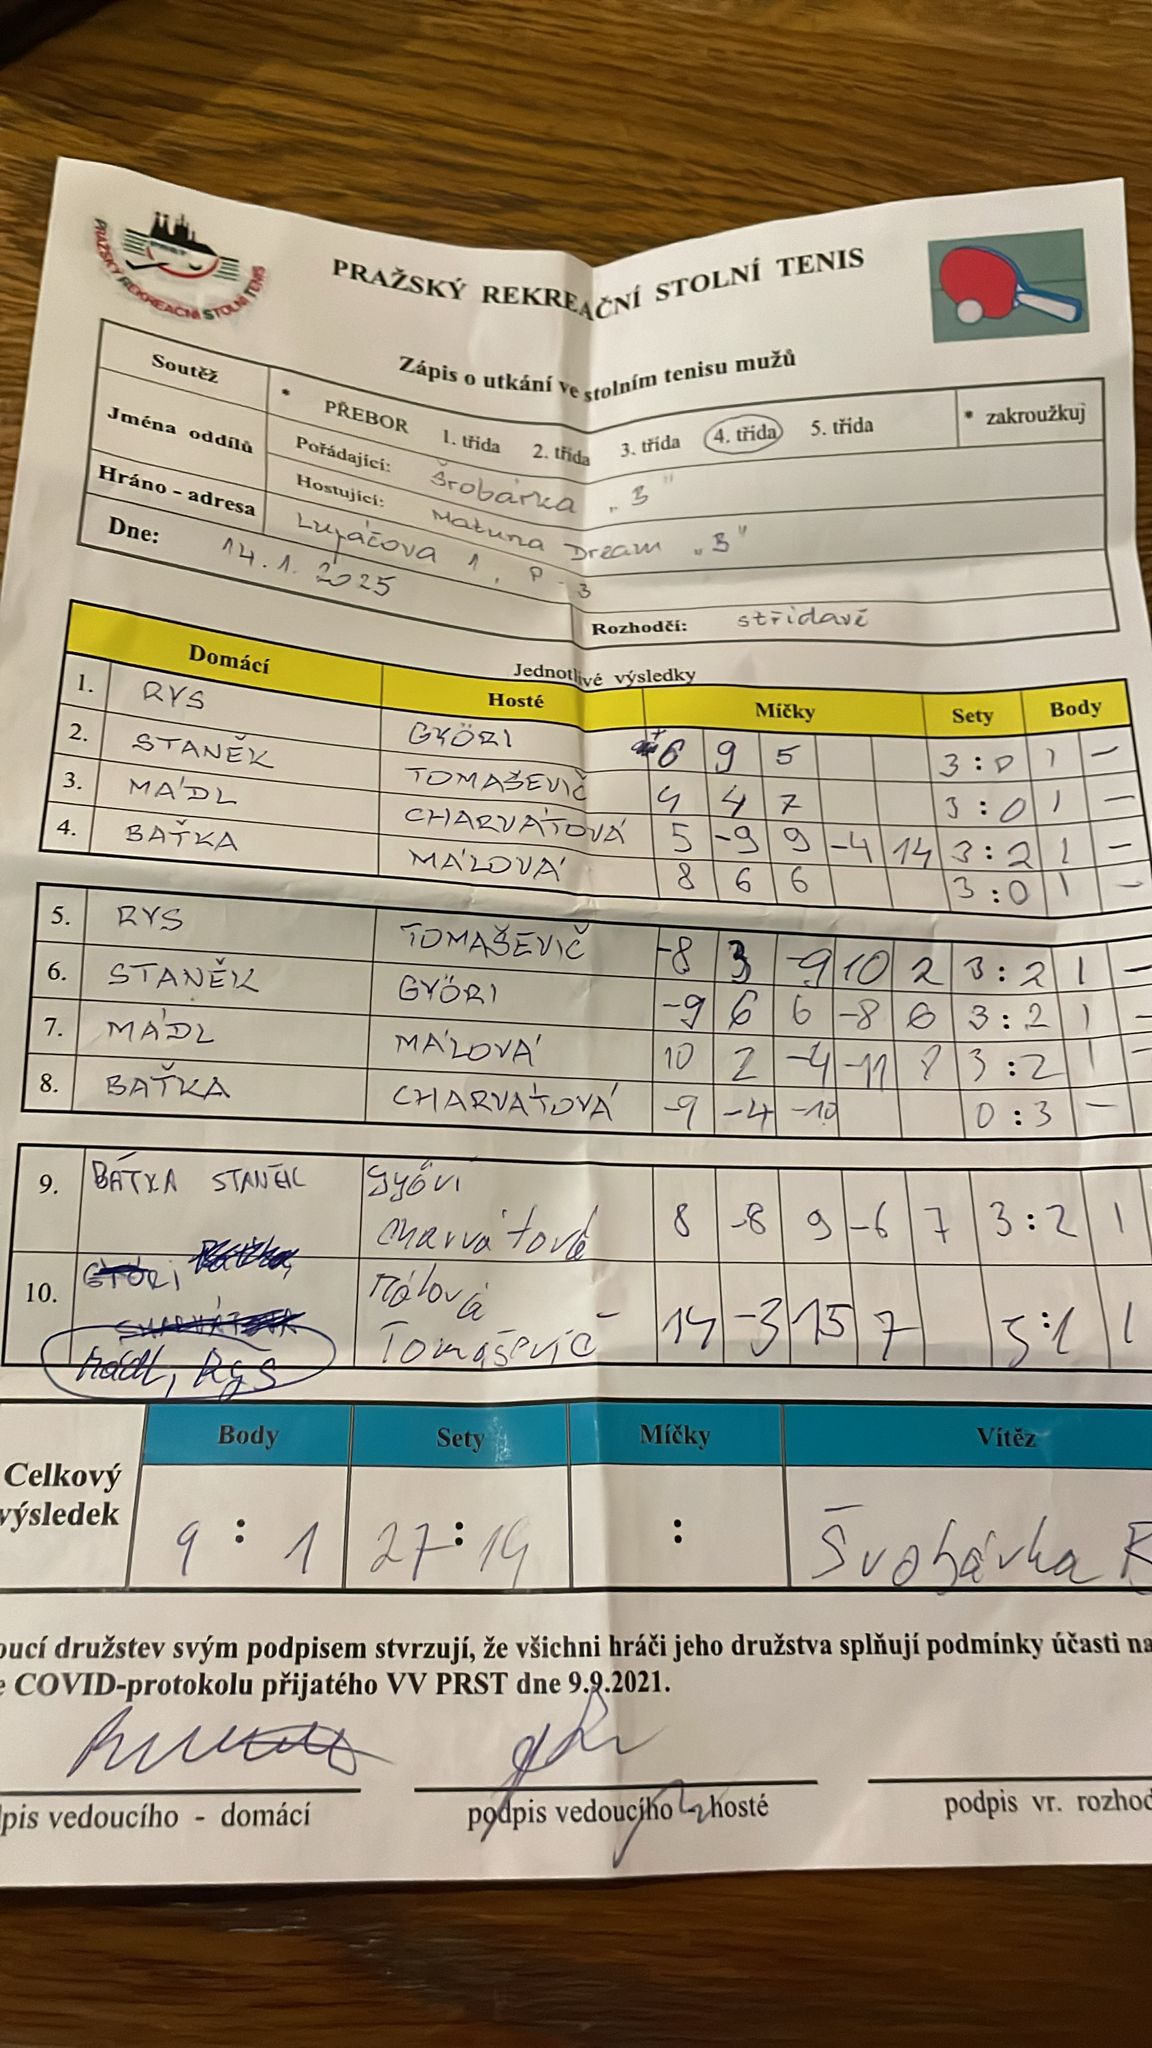 PRST
PRAŽSKÝ REKREAČNÍ STOLNÍ TENIS
PRAŽSKÝ REKREAČNÍ STOLNÍ TENIS
Zápis o utkání ve stolním tenisu mužů
Soutěž * PŘEBOR 1. třída 2. třída 3. třída 4. třída 5. třída * zakroužkuj
Jména oddílů Pořádající: Šrobárka „B"
Hostující: Matuna Dream „B"
Hráno - adresa Lupáčova 1, P-3
Dne: 14.1.2025 Rozhodčí: střídavě
Jednotlivé výsledky
Domácí Hosté Míčky Sety Body
1. RYS GYÖRI 6 9 5 3:0 1 -
2. STANĚK TOMAŠEVIČ 4 4 7 3:0 1 -
3. MÁDL CHARVÁTOVÁ 5 -9 9 -4 14 3:2 1 -
4. BAŤKA MÁLOVÁ 8 6 6 3:0 1 -
5. RYS TOMAŠEVIČ -8 3 -9 10 2 3:2 1 -
6. STANĚK GYÖRI -9 6 6 -8 6 3:2 1 -
7. MÁDL MÁLOVÁ 10 2 -4 -11 8 3:2 1 -
8. BAŤKA CHARVÁTOVÁ -9 -4 -10 0:3 -
9. BÁTKA STANĚK Györi
Charvátová 8 -8 9 -6 7 3:2 1
10. Málová -
Tomaševič 14 -3 15 7 3:1 1
Mádl, Ryš
Celkový výsledek Body Sety Míčky Vítěz
9 : 1 27:14 : Šrobárka B
oucí družstev svým podpisem stvrzují, že všichni hráči jeho družstva splňují podmínky účasti na
e COVID-protokolu přijatého VV PRST dne 9.9.2021.
pis vedoucího - domácí podpis vedoucího - hosté podpis vr. rozhod